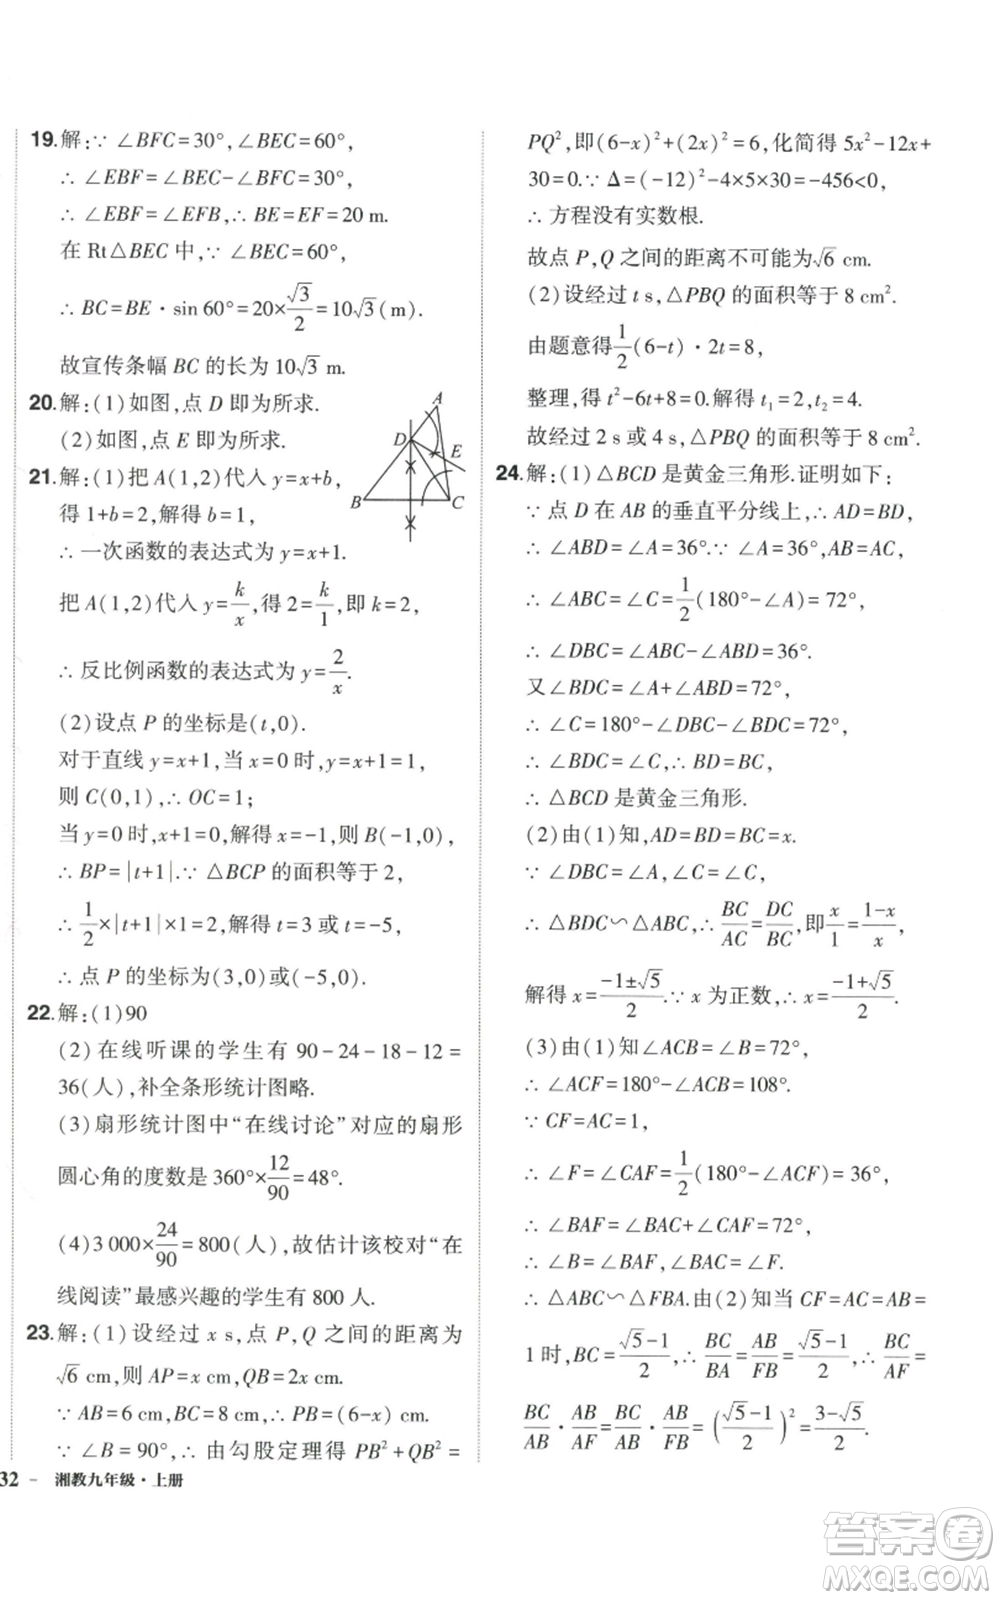 19.解:∵ ∠BFC=30°,∠BEC=60°,
∴ ∠EBF=∠BEC-∠BFC=30°,
∴ ∠EBF=∠EFB,∴ BE=EF=20 m.
在 Rt△BEC 中,∵ ∠BEC=60°,
∴ BC=BE·sin 60°=20×√3/2=10√3(m).
故宣传条幅 BC 的长为 10√3 m.
20.解:(1)如图,点 D 即为所求.
(2)如图,点 E 即为所求.
A
D
E
B
C
21.解:(1)把 A(1,2)代入 y=x+b,
得 1+b=2,解得 b=1,
∴ 一次函数的表达式为 y=x+1.
把 A(1,2)代入 y=k/x,得 2=k/1,即 k=2,
∴ 反比例函数的表达式为 y=2/x.
(2)设点 P 的坐标是(t,0).
对于直线 y=x+1,当 x=0 时,y=1,
则 C(0,1),∴ OC=1;
当 y=0 时,x+1=0,解得 x=-1,则 B(-1,0),
∴ BP=|t+1|.∵ △BCP 的面积等于 2,
∴ 1/2×|t+1|×1=2,解得 t=3 或 t=-5,
∴ 点 P 的坐标为(3,0)或(-5,0).
22.解:(1)90
(2)在线听课的学生有 90-24-18-12=
36(人),补全条形统计图略.
(3)扇形统计图中“在线讨论”对应的扇形
圆心角的度数是 360°×12/90=48°.
(4)3 000×24/90=800(人),故估计该校对“在
线阅读”最感兴趣的学生有 800 人.
23.解:(1)设经过 x s,点 P,Q 之间的距离为
√6 cm,则 AP=x cm,QB=2x cm.
∵ AB=6 cm,BC=8 cm,∴ PB=(6-x) cm.
∵ ∠B=90°,∴ 由勾股定理得 PB²+QB²=
32 - 湘教九年级·上册
PQ²,即(6-x)²+(2x)²=6,化简得 5x²-12x+
30=0.∵ Δ=(-12)²-4×5×30=-456<0,
∴ 方程没有实数根.
故点 P,Q 之间的距离不可能为√6 cm.
(2)设经过 t s,△PBQ 的面积等于 8 cm².
由题意得1/2(6-t)·2t=8,
整理,得 t²-6t+8=0.解得 t₁=2,t₂=4.
故经过 2 s 或 4 s,△PBQ 的面积等于 8 cm².
24.解:(1)△BCD 是黄金三角形.证明如下:
∵ 点 D 在 AB 的垂直平分线上,∴ AD=BD,
∴ ∠ABD=∠A=36°.∵ ∠A=36°,AB=AC,
∴ ∠ABC=∠C=1/2(180°-∠A)=72°,
∴ ∠DBC=∠ABC-∠ABD=36°.
又∠BDC=∠A+∠ABD=72°,
∴ ∠C=180°-∠DBC-∠BDC=72°,
∴ ∠BDC=∠C,∴ BD=BC,
∴ △BCD 是黄金三角形.
(2)由(1)知,AD=BD=BC=x.
∵ ∠DBC=∠A,∠C=∠C,
∴ △BDC∽△ABC,∴ BC/AC=DC/BC,即x/1=(1-x)/x,
解得 x=(-1±√5)/2.∵ x 为正数,∴ x=(-1+√5)/2.
(3)由(1)知∠ACB=∠B=72°,
∴ ∠ACF=180°-∠ACB=108°.
∵ CF=AC=1,
∴ ∠F=∠CAF=1/2(180°-∠ACF)=36°,
∴ ∠BAF=∠BAC+∠CAF=72°,
∴ ∠B=∠BAF,∠BAC=∠F.
∴ △ABC∽△FBA.由(2)知当 CF=AC=AB=
1 时,BC=(√5-1)/2,∴ BC/BA=AB/FB=(√5-1)/2,∴ BC/AF=
BC/AB·AB/AF=BC/AB·AB/FB=((√5-1)/2)²=(3-√5)/2.
答案卷
WWW.MXQE.COM